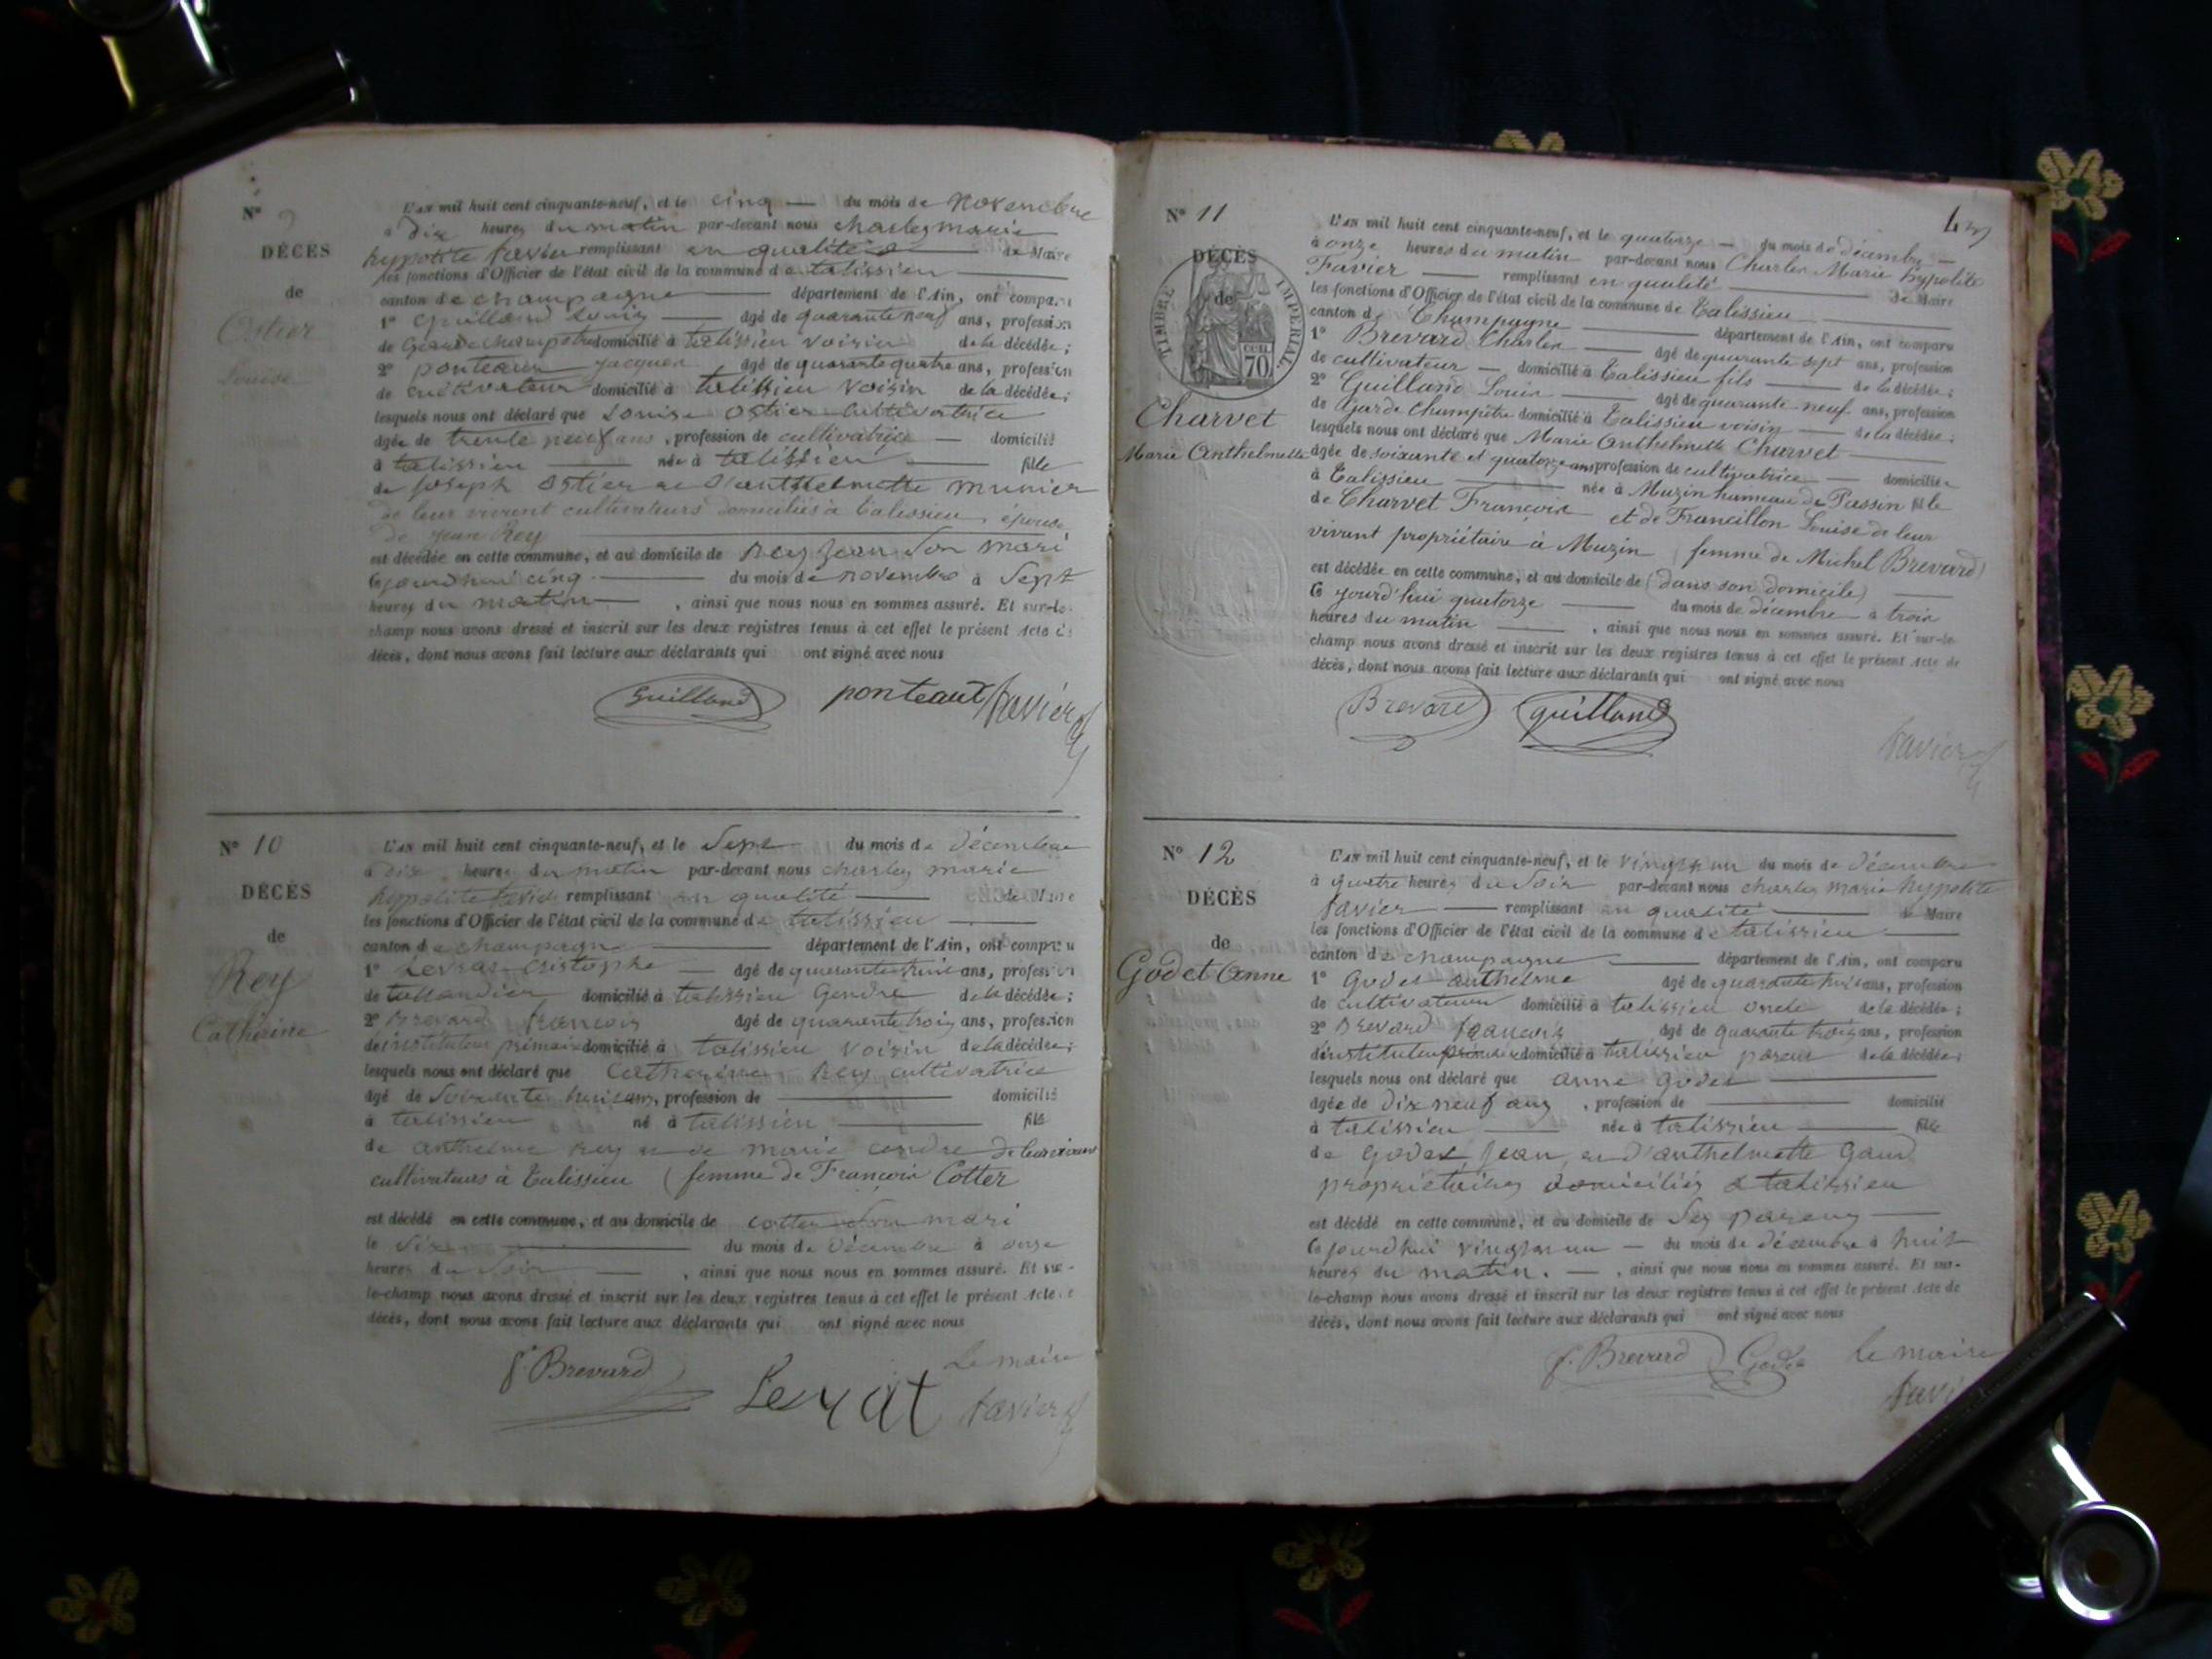 N° 9
DÉCÈS
de
Ostier
Louise
L'an mil huit cent cinquante-neuf, et le cinq — du mois de novembre
à dix heures du matin par-devant nous charles marie
hypolite favier remplissant en qualité de Maire
les fonctions d'Officier de l'état civil de la commune de talissieu
canton de champagne département de l'Ain, ont comparu
1° Guilland Louis âgé de quarante neuf ans, profession
de Garde champetre domicilié à talissieu voisin de la décédée;
2° ponteaut jacques âgé de quarante quatre ans, profession
de cultivateur domicilié à talissieu voisin de la décédée;
lesquels nous ont déclaré que Louise Ostier cultivatrice
âgée de trente neuf ans, profession de cultivatrice — domicilié
à talissieu née à talissieu fille
de joseph Ostier et d'anthelmette munier
de leur vivant cultivateurs domiciliés à talissieu, épouse
de jean Rey
est décédée en cette commune, et au domicile de Rey jean son mari
Cejourd'hui cinq du mois de novembre à sept
heures du matin, ainsi que nous nous en sommes assuré. Et sur-le-
champ nous avons dressé et inscrit sur les deux registres tenus à cet effet le présent Acte de
décès, dont nous avons fait lecture aux déclarants qui ont signé avec nous
Guilland ponteaut favier
N° 10
DÉCÈS
de
Rey
Catherine
L'an mil huit cent cinquante-neuf, et le Sept du mois de décembre
à dix heures du matin par-devant nous charles marie
hypolite favier remplissant en qualité de Maire
les fonctions d'Officier de l'état civil de la commune de talissieu
canton de champagne département de l'Ain, ont comparu
1° Levrat cristophe — âgé de quarante huit ans, profession
de taillandier domicilié à talissieu Gendre de la décédée;
2° Brevard françois âgé de quarante trois ans, profession
de instituteur primaire domicilié à talissieu voisin de la décédée;
lesquels nous ont déclaré que Catherine Rey cultivatrice
âgé de soixante huit ans, profession de domicilié
à talissieu né à talissieu fille
de anthelme Rey et de marie cendre de leur vivant
cultivateurs à Talissieu (femme de François Cotter
est décédé en cette commune, et au domicile de cotter son mari
le six du mois de décembre à onze
heures du soir, ainsi que nous nous en sommes assuré. Et sur-
le-champ nous avons dressé et inscrit sur les deux registres tenus à cet effet le présent Acte de
décès, dont nous avons fait lecture aux déclarants qui ont signé avec nous
f. Brevard Levrat Le maire
favier
43
N° 11
DÉCÈS
de
TIMBRE IMPERIAL
CEN.
70
Charvet
Marie Anthelmette
L'an mil huit cent cinquante-neuf, et le quatorze — du mois de décembre —
à onze heures du matin par-devant nous Charles Marie hypolite
Favier — remplissant en qualité de Maire
les fonctions d'Officier de l'état civil de la commune de Talissieu
canton de Champagne département de l'Ain, ont comparu
1° Brevard Charles — âgé de quarante sept ans, profession
de cultivateur — domicilié à Talissieu fils — de la décédée;
2° Guilland Louis — âgé de quarante neuf ans, profession
de Garde Champêtre domicilié à Talissieu voisin — de la décédée;
lesquels nous ont déclaré que Marie Anthelmette Charvet —
âgée de soixante et quatorze ans profession de cultivatrice — domiciliée
à Talissieu — née à Muzin hameau de Passin fille
de Charvet François et de Francillon Louise de leur
vivant propriétaire à Muzin (femme de Michel Brevard)
est décédée en cette commune, et au domicile de (dans son domicile)
Ce jourd'hui quatorze — du mois de décembre — à trois
heures du matin —, ainsi que nous nous en sommes assuré. Et sur-le-
champ nous avons dressé et inscrit sur les deux registres tenus à cet effet le présent Acte de
décès, dont nous avons fait lecture aux déclarants qui ont signé avec nous
Brevard guilland
favier
N° 12
DÉCÈS
de
Godet Anne
L'an mil huit cent cinquante-neuf, et le vingt un du mois de décembre
à quatre heures du soir par-devant nous charles marie hypolite
favier — remplissant en qualité de Maire
les fonctions d'Officier de l'état civil de la commune de talissieu
canton de champagne département de l'Ain, ont comparu
1° Godet anthelme âgé de quarante huit ans, profession
de cultivateur domicilié à talissieu oncle de la décédée;
2° Brevard françois âgé de quarante trois ans, profession
d'instituteur primaire domicilié à talissieu parent de la décédée;
lesquels nous ont déclaré que anne godet
âgée de dix neuf ans, profession de domicilié
à talissieu — née à talissieu — fille
de godet jean, et d'anthelmette Gaud
propriétaires domiciliés à talissieu
est décédé en cette commune, et au domicile de ses parens
Cejourd'hui vingt un — du mois de décembre à huit
heures du matin. —, ainsi que nous nous en sommes assuré. Et sur-
le-champ nous avons dressé et inscrit sur les deux registres tenus à cet effet le présent Acte de
décès, dont nous avons fait lecture aux déclarants qui ont signé avec nous
f. Brevard Godet le maire
favi